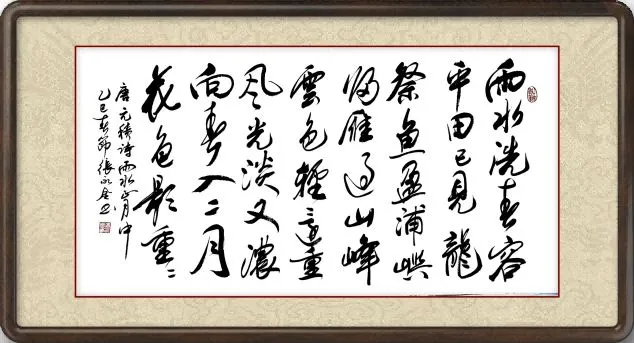 雨水洗春容
平田已見龍
祭魚盈浦嶼
歸雁過山峰
雲色輕還重
風光淡又濃
向春入二月
花色影重〻
唐元稹詩雨水正月中
乙巳春節張